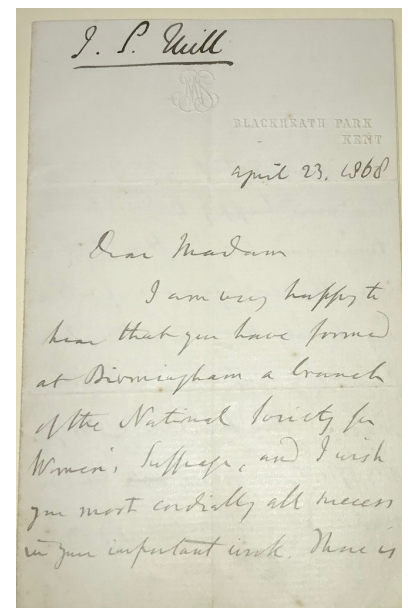 J. S. Mill
BLACKHEATH PARK
KENT
April 23, 1868
Dear Madam
I am very happy to
hear that you have formed
at Birmingham a branch
of the National Society for
Women's Suffrage, and I wish
you most cordially all success
in your important work. There is